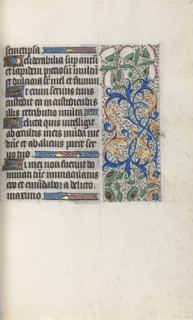 semetipsa
Desiderabilia sup aurum
et lapidem preciosu multu
et dulciora sup mel et fauum
Et enim seruus tuus
custodit ea in custodiendis
illis retributio multa
Delicta quis intelligit
ab ocultis meis munda me do
mine et ab alienis parce ser
uo tuo
Si mei non fuerint do
minati tuc immaculatus
ero et emundabor a delicto
maximo